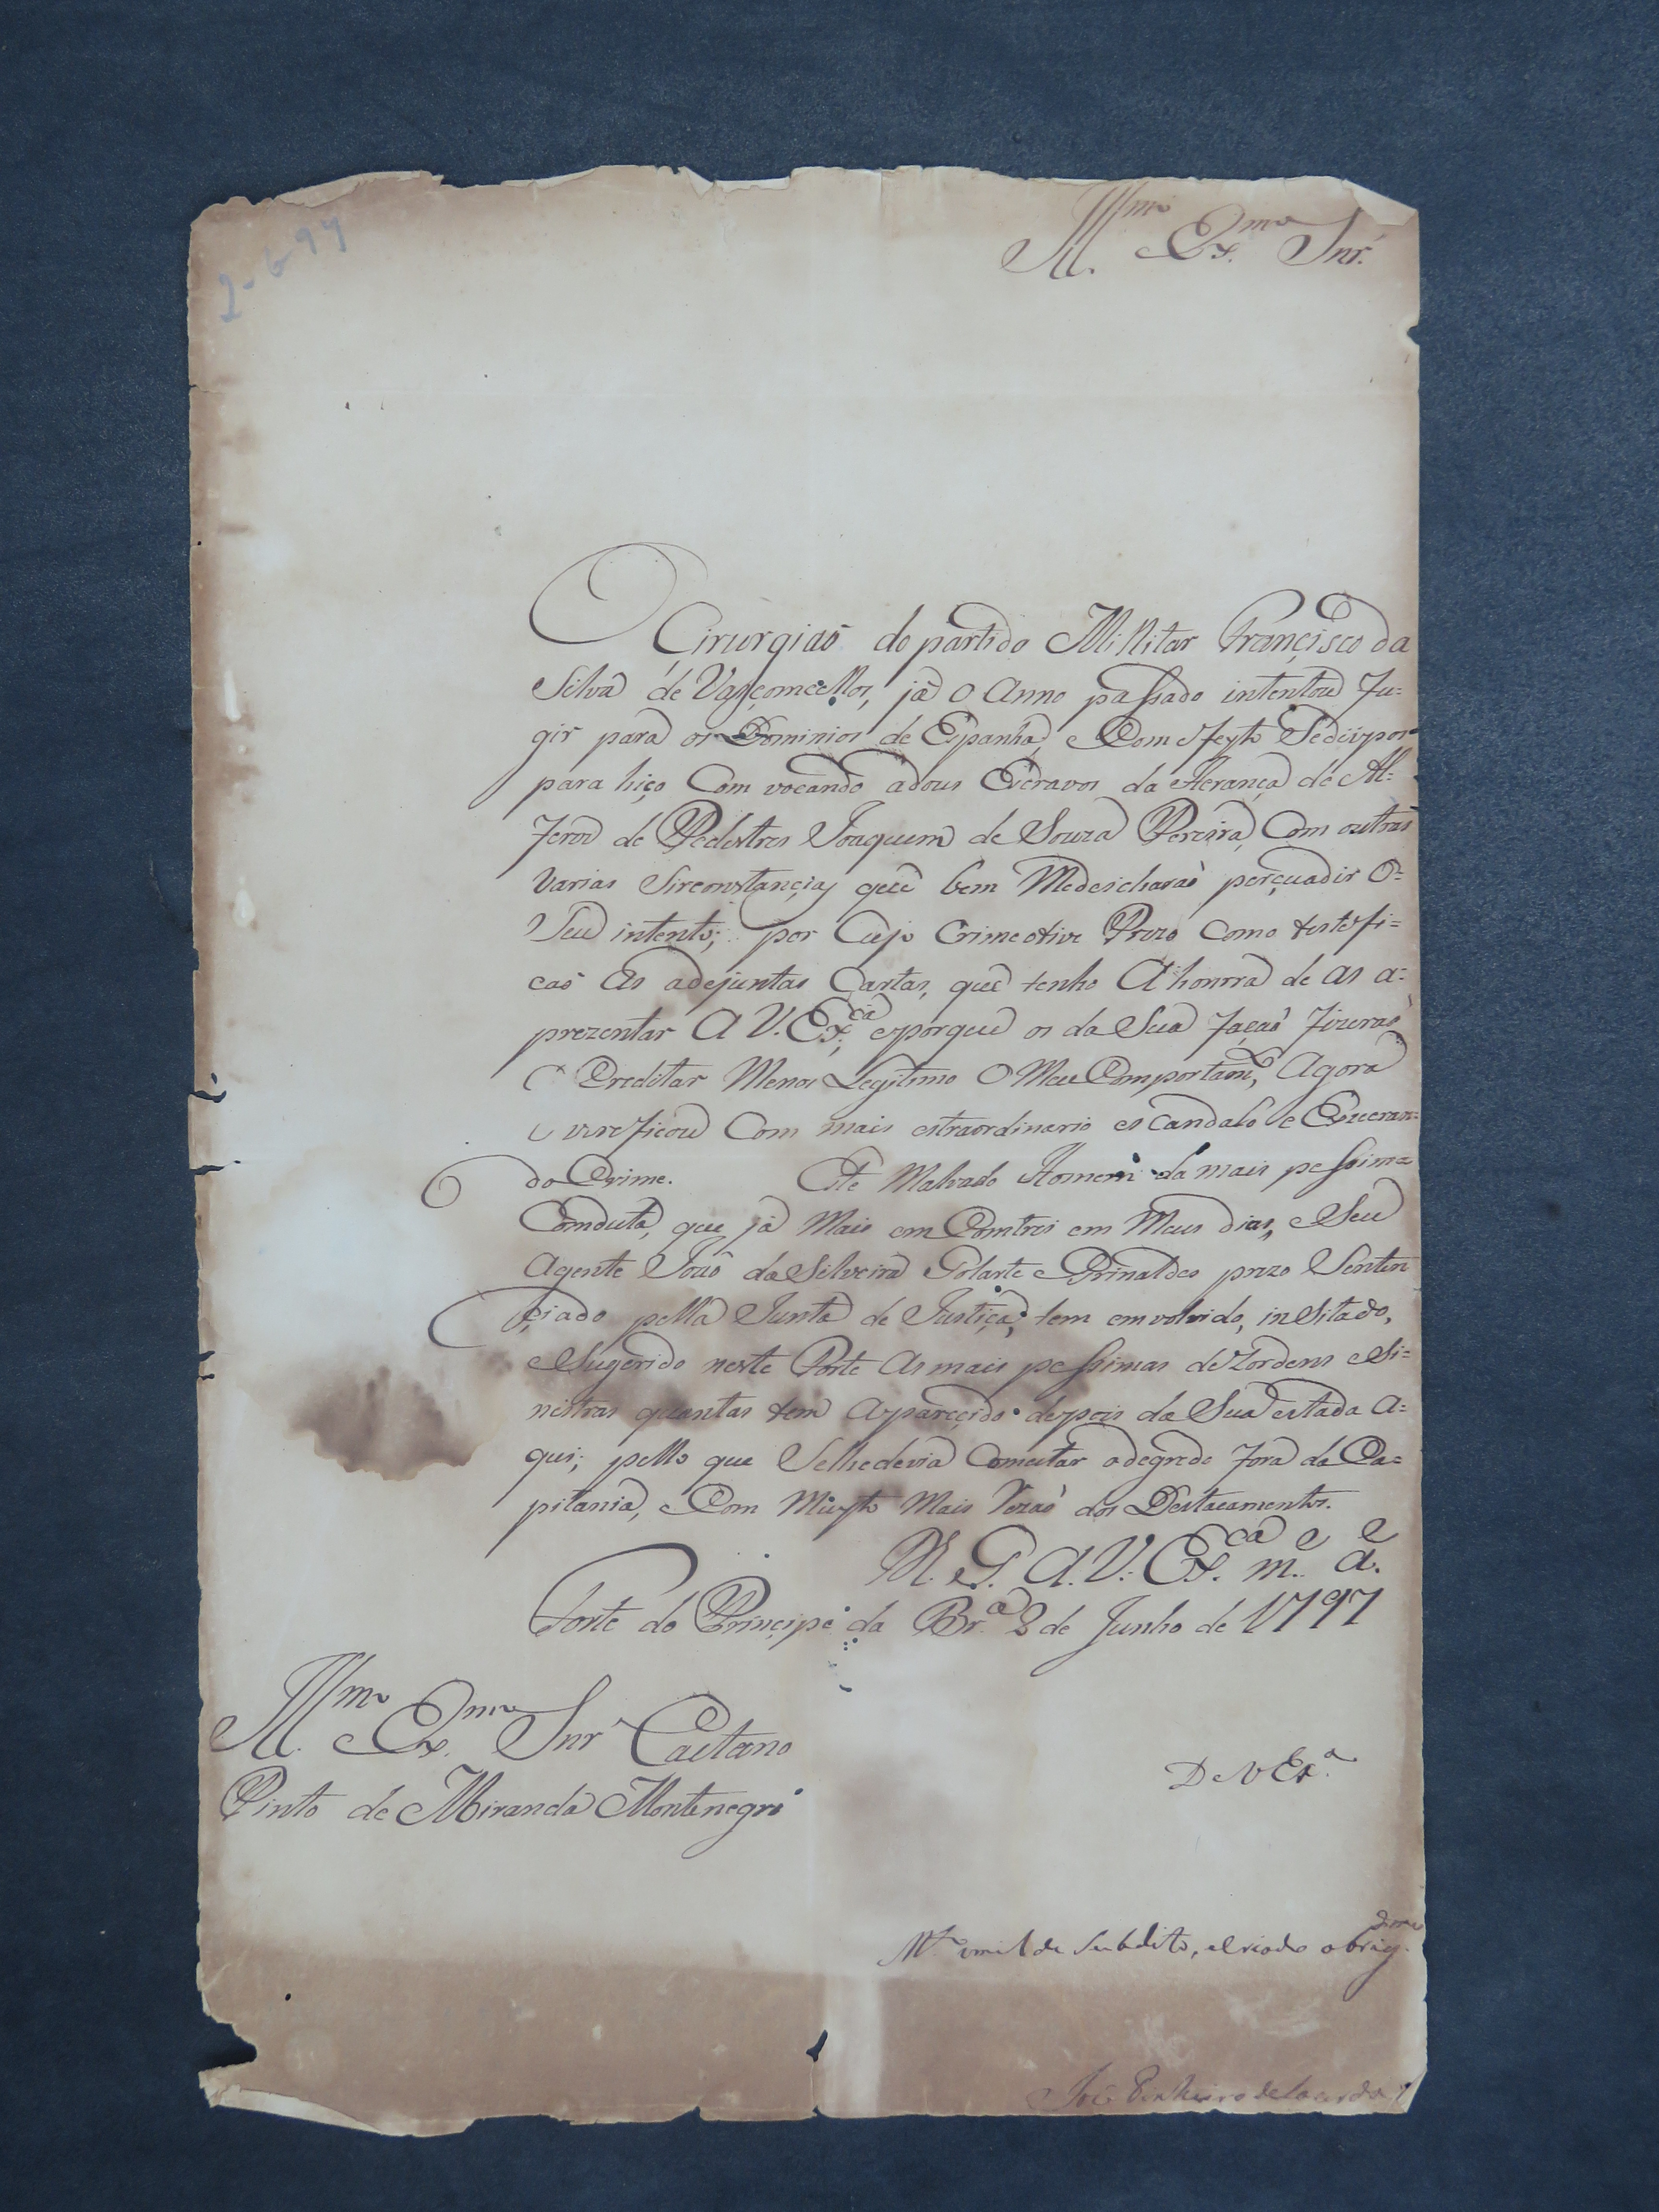 2-6-97
Ill.mo Ex.mo Snr.
O Cirurgiaõ do partido Millitar Françisco da
Silva de Vasçomcellos, já o Anno passado intentou Fu=
gir para os Dominios de Espanha, e Com efeyto Se dispos
para hiço Com vocando a dous Escravos da Herança de Al=
feros de Pedestres Joaquem de Souza Pereira, Com outras
varias Sircomstançias que bem Me deicharaõ perçuadir o=
Seu intento; por Cujo Crime otive Prezo Como testefi=
caõ as adejuntas Cartas, que tenho A honrra de as a=
prezentar A V. Ex.cia, e porque os da Sua façaõ fizeraõ
Creditar Menos Legitimo O Meu Comportam.to, Agora
vereficou Com mais estraordinario escandalo e Exueran=
do Crime. Este Malvado Homem da mais pessima
Comduta, que já Mais em Comtrei em Meus dias, e Seu
Agente Joaõ da Silveira Golarte e Grinaldes prezo Senten
çiado pella Junta de Justiça, tem emvolvido, insitado,
e Sugerido neste Forte As mais pessimas dezordens e Si=
nistras quantas tem Apareçido depois da Sua estada a=
qui; pello que Selhe devia Comutar o degredo fora da Ca=
pitania, e Com Muyto Mais rezaõ dos Destacamentos.
N. S. G. A. V. Ex.ca m.e a.e
Forte do Prinçipe da Br.a 2 de Junho de 1797
Ill.mo Ex.mo Snr Caetano
Pinto de Miranda Montenegro
De V Ex.a
M.to umilde Subdito, e criado obrig.dimo
Joze Pinheiro de Lacerda